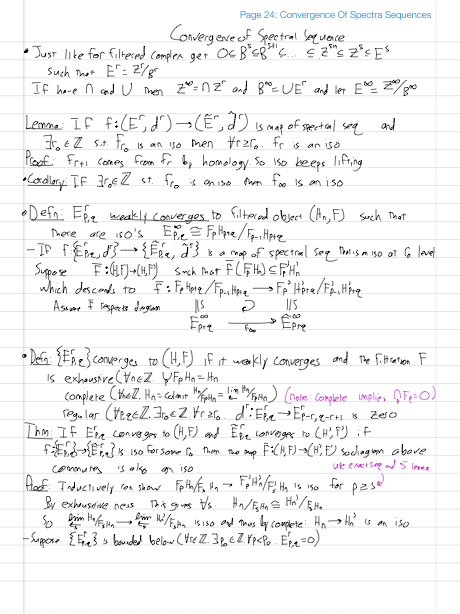 Page 24: Convergence Of Spectra Sequences
Convergence of Spectral Sequence
• Just like for filtered complex get 0 ⊆ B^s ⊆ B^{s+1} ⊆ ... ⊆ Z^{s+1} ⊆ Z^s ⊆ E^s
such that E^r = Z^r/B^r
If have ∩ and ∪ then Z^∞ = ∩ Z^r and B^∞ = ∪ B^r and let E^∞ = Z^∞/B^∞
Lemma: If f: (E^r, d^r) → (Ẽ^r, d̃^r) is map of spectral seq and
∃ r₀ ∈ Z s.t. f_{r₀} is an iso then ∀ r ≥ r₀. f_r is an iso
Proof: f_{r+1} comes from f_r by homology. So iso keeps lifting
• Corollary: If ∃ r₀ ∈ Z s.t. f_{r₀} is an iso then f_∞ is an iso
• Defn: E^r_{p,q} weakly converges to filtered object (H_n, F) such that
there are iso's E^∞_{p,q} ≅ F_p H_{p+q} / F_{p-1} H_{p+q}
- If f: {E^r_{p,q}, d^r} → {Ẽ^r_{p,q}, d̃^r} is a map of spectral seq that is an iso at r₀ level
Suppose F̄: (H,F) → (H',F') such that F̄(F_p H_n) ⊆ F'_p H'_n
which descends to F̄: F_p H_{p+q} / F_{p-1} H_{p+q} → F'_p H'_{p+q} / F'_{p-1} H'_{p+q}
Assume F̄ respects diagram
E^∞_{p+q} → f_∞ Ẽ^∞_{p+q}
• Defn: {E^r_{p,q}} converges to (H,F) if it weakly converges and the filtration F
is exhaustive (∀ n ∈ Z. ∪ F_p H_n = H_n
complete (∀ n ∈ Z. H_n = H_n/F_p H_n = lim H_n/F_p H_n) (note complete implies ∩ F_p = 0)
regular (∀ p,q ∈ Z. ∃ r₀ ∈ Z. ∀ r ≥ r₀. d^r: E^r_{p,q} → E^r_{p-r,q-r+1} is zero
Thm: If E^r_{p,q} converges to (H,F) and Ẽ^r_{p,q} converges to (H',F') if
f: {E^r_{p,q}} → {Ẽ^r_{p,q}} is iso for some r₀ then the map F̄: (H,F) → (H',F') so diagram above
commutes is also an iso use exact seq and 5 lemma
Proof: Inductively can show F_p H_n / F_s H_n → F'_p H'_n / F'_s H'_n is iso for p ≥ s
By exhaustiveness This gives ∀s. H_n/F_s H_n ≅ H_n'/F_s H_n
So lim H_n/F_s H_n → lim H_n'/F_s H_n is iso and thus by complete: H_n → H_n' is an iso
- Suppose {E^r_{p,q}} is bounded below (∀ r ∈ Z. ∃ p₀ ∈ Z. ∀ p < p₀. E^r_{p,q} = 0)